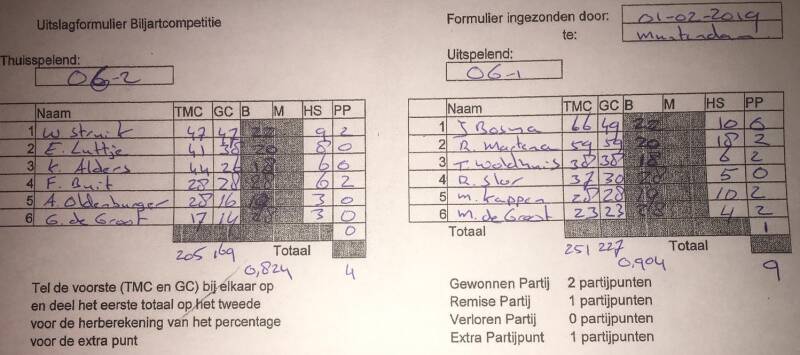 Uitslagformulier Biljartcompetitie
Formulier ingezonden door: 01-02-2019
te:
Thuisspelend:
06-2
Uitspelend:
06-1
Naam TMC GC B M HS PP
1 W Struik 47 47 22 9 2
2 E. Luttje 41 38 20 8 0
3 K. Alders 44 26 18 6 0
4 F. Buit 28 28 28 6 2
5 A. Oldenburger 28 16 19 3 0
6 G. de Groot 17 14 28 3 0
0
Totaal
205 169
0,824 4
Naam TMC GC B M HS PP
1 J Bosma 66 49 22 10 0
2 R. Martena 59 59 20 18 2
3 T. Woldhuis 38 38 18 6 2
4 R. Slor 37 30 28 5 0
5 M. Kappen 28 28 19 10 2
6 M. de Groot 23 23 28 4 2
Totaal 1
Totaal
251 227
0,904 9
Tel de voorste (TMC en GC) bij elkaar op
en deel het eerste totaal op het tweede
voor de herberekening van het percentage
voor de extra punt
Gewonnen Partij 2 partijpunten
Remise Partij 1 partijpunten
Verloren Partij 0 partijpunten
Extra Partijpunt 1 partijpunten